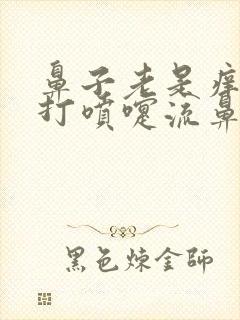 鼻子老是痒
打喷嚏流鼻
黑色炼金师